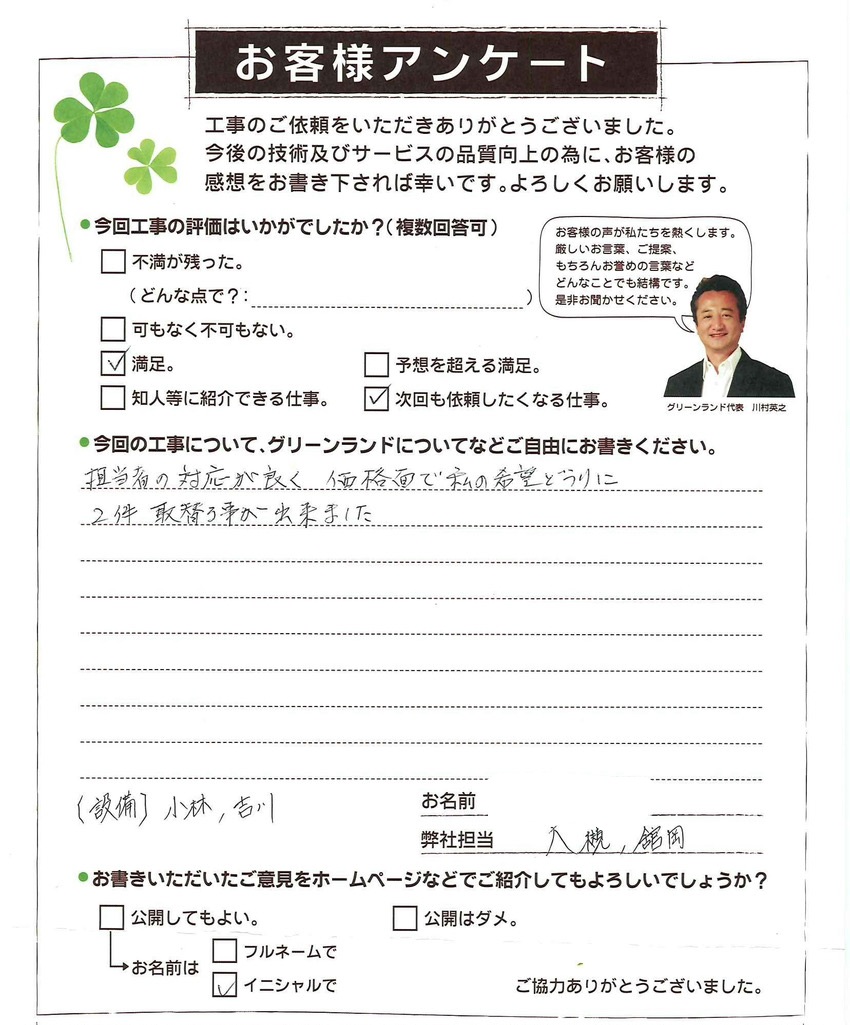 お客様アンケート
工事のご依頼をいただきありがとうございました。
今後の技術及びサービスの品質向上の為に、お客様の
感想をお書き下されば幸いです。よろしくお願いします。
●今回工事の評価はいかがでしたか？（複数回答可）
不満が残った。
（どんな点で？： ）
可もなく不可もない。
満足。
予想を超える満足。
知人等に紹介できる仕事。
次回も依頼したくなる仕事。
お客様の声が私たちを熱くします。
厳しいお言葉、ご提案、
もちろんお誉めの言葉など
どんなことでも結構です。
是非お聞かせください。
グリーンランド代表 川村英之
●今回の工事について、グリーンランドについてなどご自由にお書きください。
担当者の対応が良く 価格面で私の希望どうりに
2件 取替る事が出来ました
(設備) 小林, 吉川
お名前
弊社担当 大槻, 舘岡
●お書きいただいたご意見をホームページなどでご紹介してもよろしいでしょうか？
公開してもよい。
公開はダメ。
お名前は
フルネームで
イニシャルで
ご協力ありがとうございました。